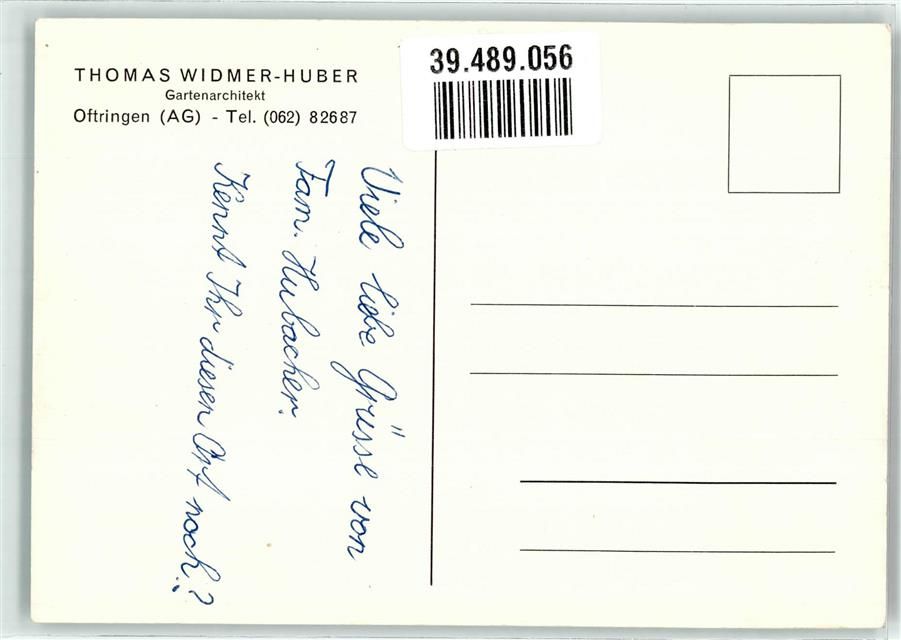 THOMAS WIDMER-HUBER
Gartenarchitekt
Oftringen (AG) - Tel. (062) 82687
39.489.056
Viele liebe Grüsse von
Fam. Hubacher.
Kennt Ihr diesen Ort noch?